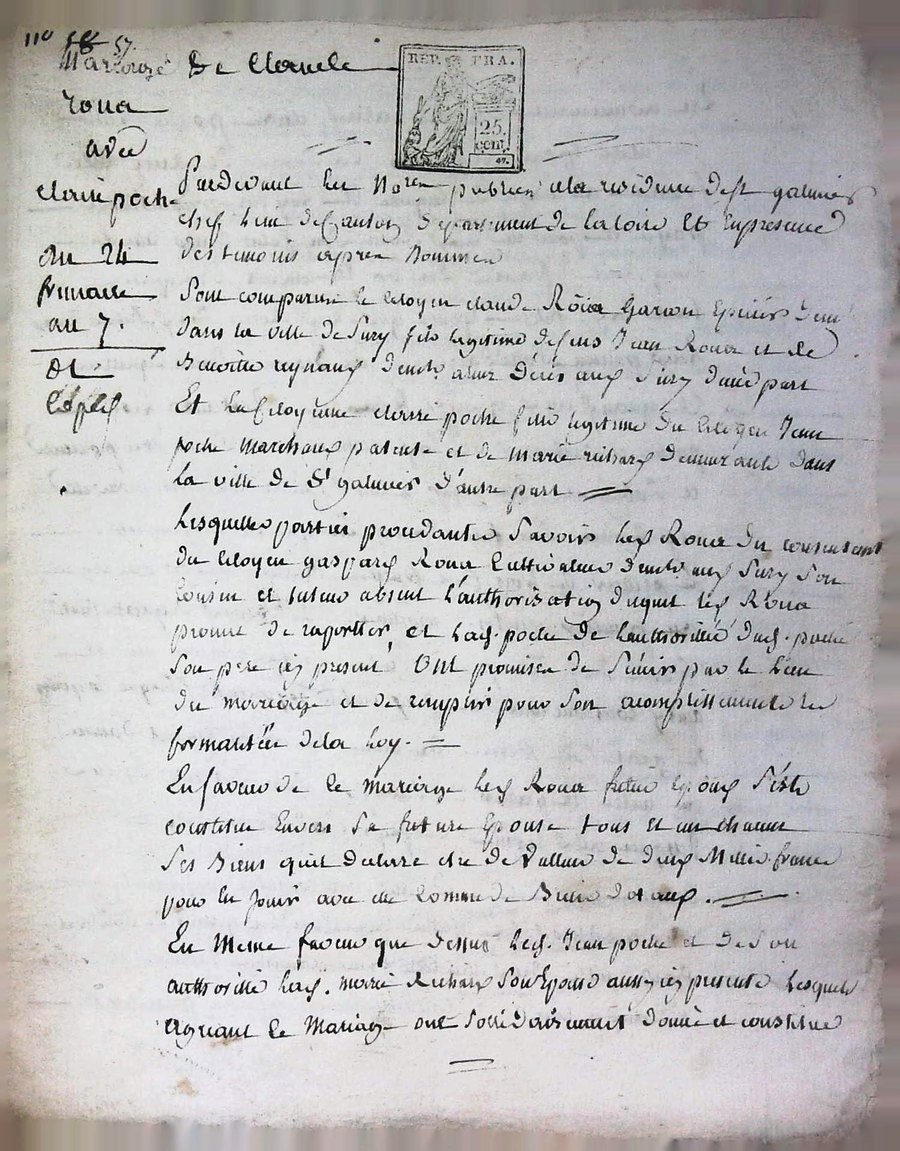 110 58 57.
Mariage De Claude
Roua
avec
Claire poche
du 24
frimaire
an 7.
Et
Expéd.
REP. FRA.
25.
cent.
Pardevant les Nores publics a la residence de St galmier
chef lieu de Canton département de la loire Et En presence
des temoins apres Nommes
Sont comparus le Citoyen claude Roüa Garçon Epicier dem
dans la ville de Sury fils legitime de feus Jean Roua et de
Benoitte reynaud demts aud Sury d'une part
Et la Citoyenne claire poche fille legitime du Citoyen Jean
poche Marchand patenté et de Marie richard demeurants dans
la ville de St galmier d'autre part
Lesquelles parties procedantes Savoir led Roua du consentement
du Citoyen gaspard Roua Cultivateur demt aud Sury Son
Cousin et absent l'authorisation duquel led Roua
promet de raporter, et lad. poche de l'authorité dud. poche
Son pere icy present, Ont promises de S'unir par le lien
du mariage et de remplir pour Son acomplissement les
formalitées de la loy.
En faveur de ce mariage led Roua futur Epoux S'este
constitué Envers Sa future Epouse tous et un chacun
Ses Biens qu'il declare etre de Valleur de deux Mille francs
pour en jouir avec elle comme de Biens dotaux.
En Meme faveur que dessus led. Jean poche et de Son
authorité lad. marie Richard Son Epouse aussy icy presente lesquels
agreant le Mariage ont Sollidairement donné et constitué